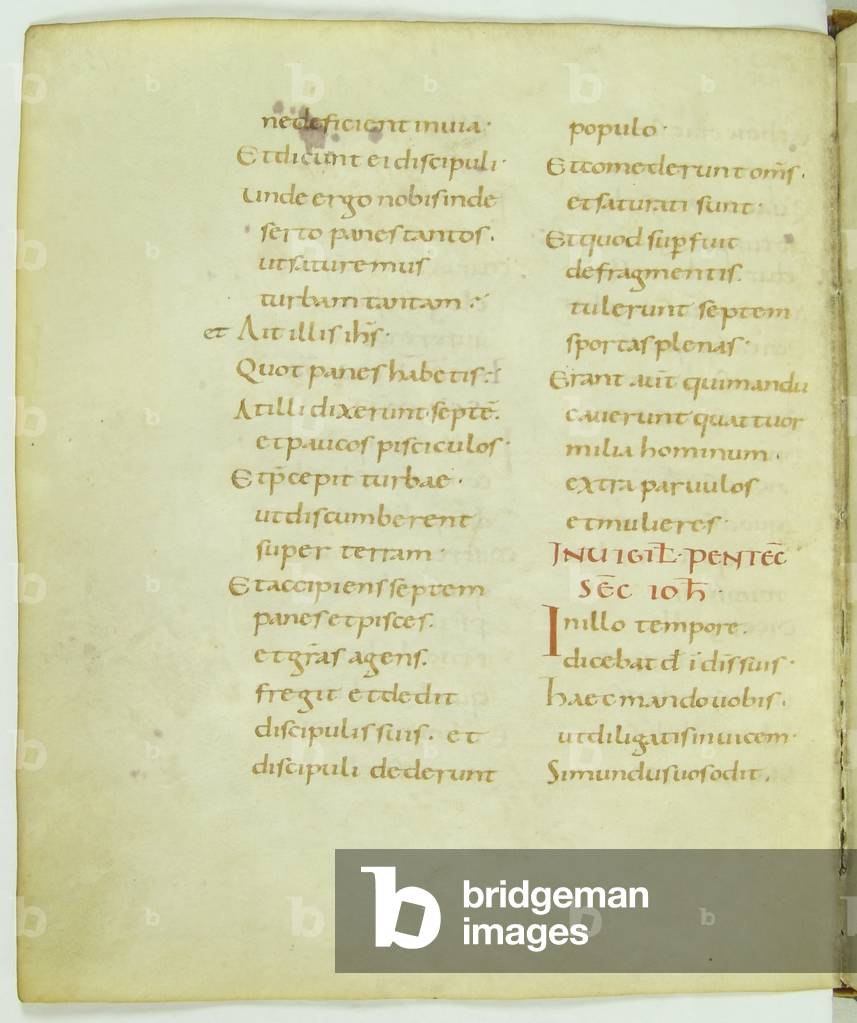 nedeficiant inuia·
Etdicunt ei discipuli·
unde ergo nobis inde
serto panes tantos.
utsaturemus
turbam tantam·:
et Ait illis ihs̄·
Quot panes habetis·:
At illi dixerunt· septē.
et paucos pisciculos·
Et p̄cepit turbae·
ut discumberent
super terram·
Et accipiens septem
panes et pisces.
et gr̄as agens.
fregit et dedit
discipulis suis. et
discipuli dederunt
populo·
Et comederunt om̄s.
et saturati sunt·
Et quod sup̱ fuit
defragmentis.
tulerunt septem
sportas plenas·
Erant aūt qui mandu
cauerunt quattuor
milia hominum.
extra paruulos
et mulieres·
IN UIGIL̄· PENTEC̄
SEC̄ IOH̄·
In illo tempore.
dicebat d̄ i dis suis·
haec mando uobis.
ut diligatis inuicem·
Si mundus uos odit.
bridgeman
images